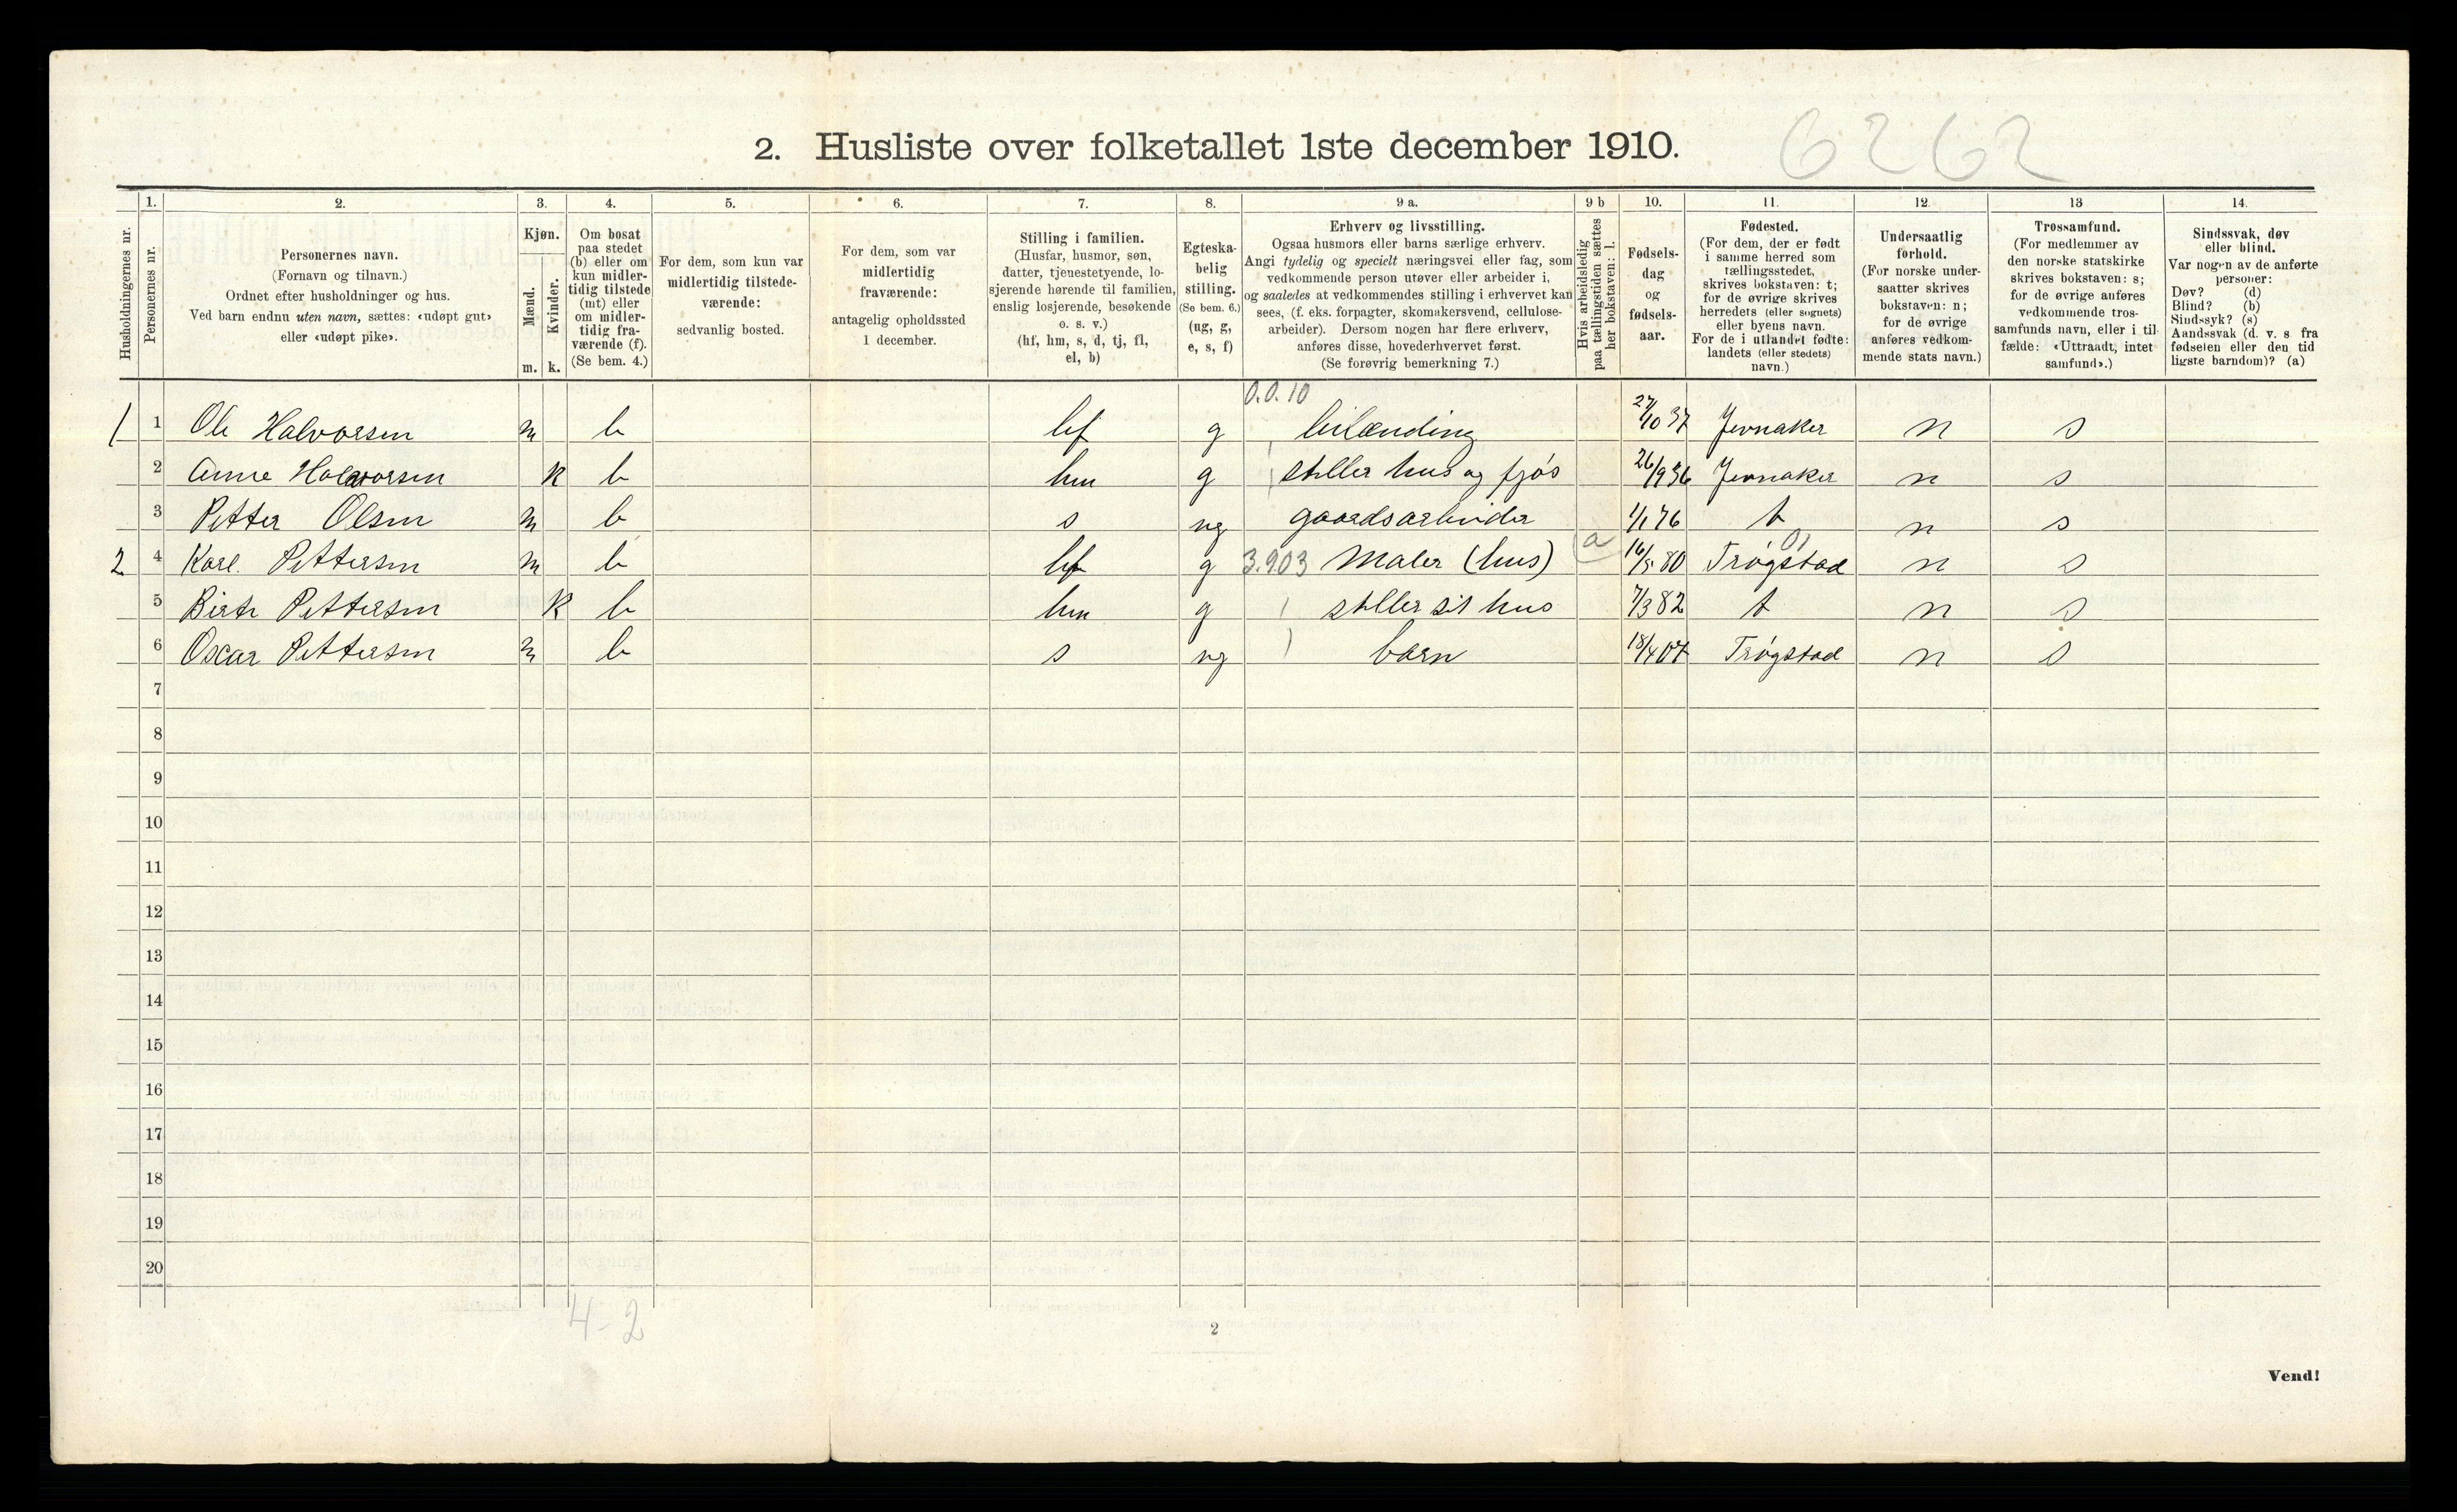 2. Husliste over folketallet 1ste december 1910.
6262
Husholdningernes nr.
1.
Personernes nr.
2.
Personernes navn.
(Fornavn og tilnavn.)
Ordnet efter husholdninger og hus.
Ved barn endnu uten navn, sættes: «udøpt gut»
eller «udøpt pike».
3.
Kjøn.
Mænd.
Kvinder.
m. k.
4.
Om bosat
paa stedet
(b) eller om
kun midler-
tidig tilstede
(mt) eller
om midler-
tidig fra-
værende (f).
(Se bem. 4.)
5.
For dem, som kun var
midlertidig tilstede-
værende:
sedvanlig bosted.
6.
For dem, som var
midlertidig
fraværende:
antagelig opholdssted
1 december.
7.
Stilling i familien.
(Husfar, husmor, søn,
datter, tjenestetyende, lo-
sjerende hørende til familien,
enslig losjerende, besøkende
o. s. v.)
(hf, hm, s, d, tj, fl,
el, b)
8.
Egteska-
belig
stilling.
(Se bem. 6.)
(ug, g,
e, s, f)
9 a.
Erhverv og livsstilling.
Ogsaa husmors eller barns særlige erhverv.
Angi tydelig og specielt næringsvei eller fag, som
vedkommende person utøver eller arbeider i,
og saaledes at vedkommendes stilling i erhvervet kan
sees, (f. eks. forpagter, skomakersvend, cellulose-
arbeider). Dersom nogen har flere erhverv,
anføres disse, hovederhvervet først.
(Se forøvrig bemerkning 7.)
9 b
Hvis arbeidsledig
paa tællingstiden sættes
her bokstaven: l.
10.
Fødsels-
dag
og
fødsels-
aar.
11.
Fødested.
(For dem, der er født
i samme herred som
tællingsstedet,
skrives bokstaven: t;
for de øvrige skrives
herredets (eller sognets)
eller byens navn.
For de i utlandet fødte:
landets (eller stedets)
navn.)
12.
Undersaatlig
forhold.
(For norske under-
saatter skrives
bokstaven: n;
for de øvrige
anføres vedkom-
mende stats navn.)
13
Trossamfund.
(For medlemmer av
den norske statskirke
skrives bokstaven: s;
for de øvrige anføres
vedkommende tros-
samfunds navn, eller i til-
fælde: «Uttraadt, intet
samfund».)
14.
Sindssvak, døv
eller blind.
Var nogen av de anførte
personer:
Døv? (d)
Blind? (b)
Sindssyk? (s)
Aandssvak (d. v. s. fra
fødselen eller den tid-
ligste barndom)? (a)
0.0.10
1 1 Ole Halvorsen m b hf g 27/10 37 Jevnaker n s
2 Anne Halvorsen k b hm g steller hus og fjøs 26/9 36 Jevnaker n s
3 Petter Olsen m b s ug gaardsarbeider 1/1 76 t n s
2 4 Karl Pettersen m b hf g 3.903 Maler (hus) a 16/5 80 Trøgstad 01 n s
5 Birte Pettersen k b hm g steller sit hus 7/3 82 t n s
6 Oscar Pettersen m b s ug barn 18/4 07 Trøgstad n s
7
8
9
10
11
12
13
14
15
16
17
18
19
20
4-2
2
Vend!